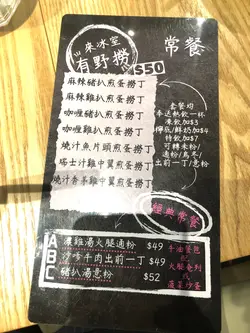 來冰室
有野撈
$50
常餐
麻辣豬扒煎蛋撈丁
麻辣雞扒煎蛋撈丁
咖喱豬扒煎蛋撈丁
咖喱雞扒煎蛋撈丁
燒汁魚片頭煎蛋撈丁
瑞士汁雞中翼煎蛋撈丁
燒汁香茅雞中翼煎蛋撈丁
套餐均
奉送熱飲一杯
凍飲加$3
特飲加$7
可轉米粉/
通粉/烏冬/
出前一丁/意粉
經典常餐
A
B
C
濃雞湯火腿通粉 $49
沙嗲牛肉出前一丁 $49
豬扒湯意粉 $52
牛油餐包
配
火腿奄列
或